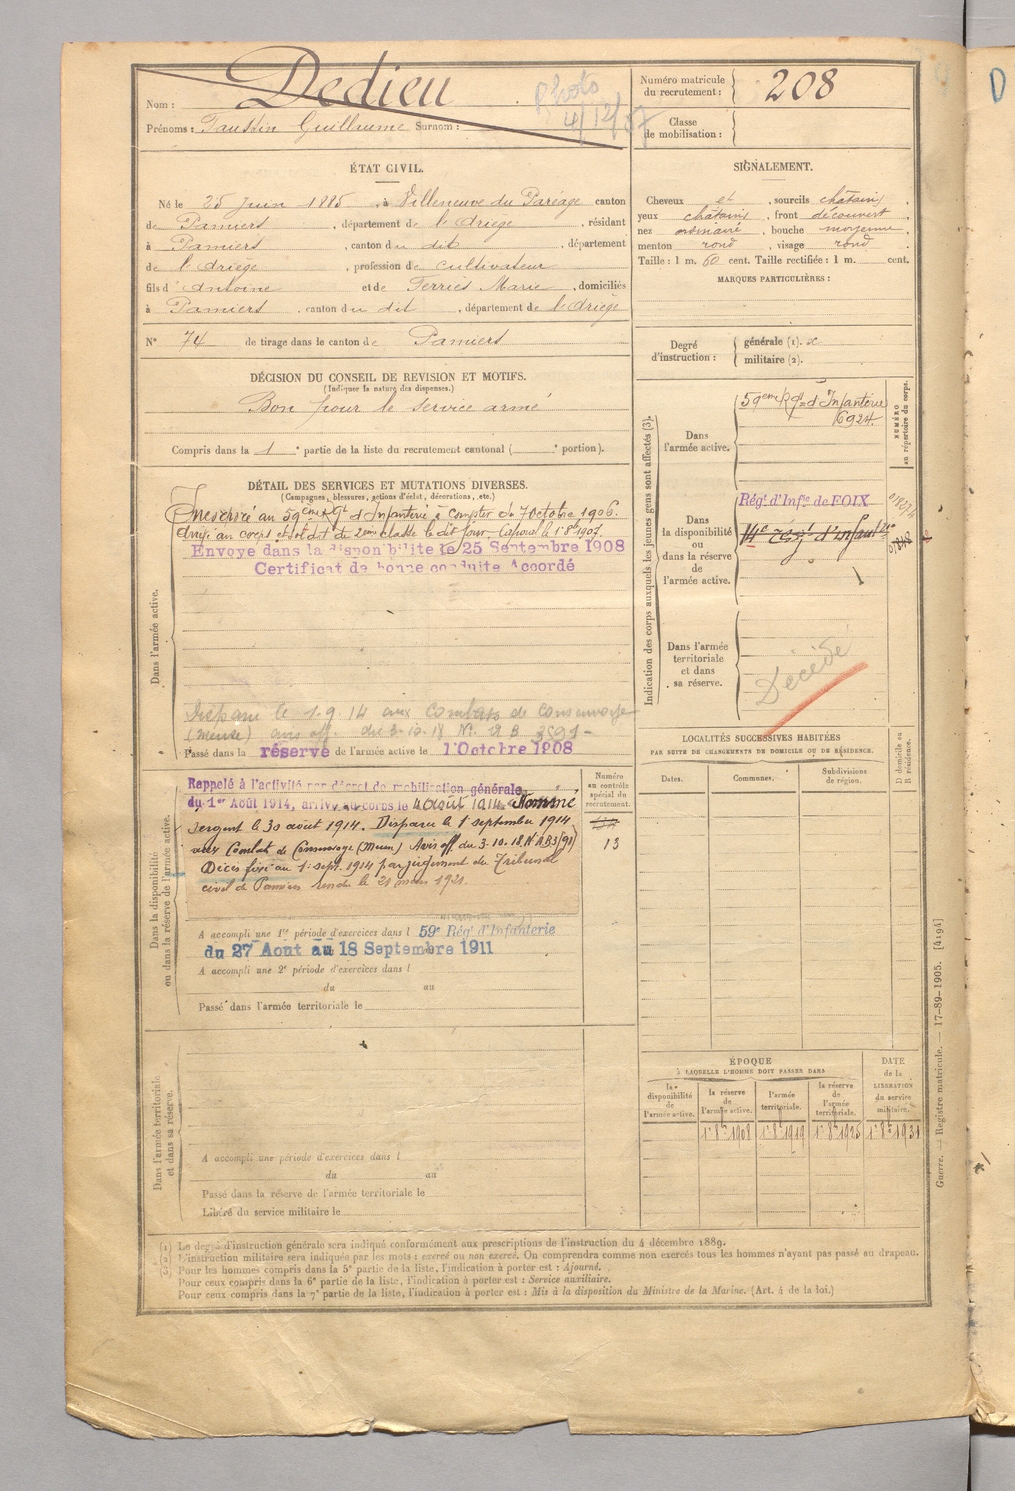 Nom : Dedieu
Prénoms : Faustin Guillaume Surnom :
Photo
4/12/87
Numéro matricule du recrutement : 208
Classe de mobilisation :
ÉTAT CIVIL.
Né le 25 Juin 1885, à Villeneuve du Paréage canton
de Pamiers, département de l'Ariège, résidant
à Pamiers, canton du dit, département
de l'Ariège, profession de cultivateur
fils d'Antoine et de Terriés Marie, domiciliés
à Pamiers, canton du dit, département de l'Ariège
N° 74 de tirage dans le canton de Pamiers
SIGNALEMENT.
Cheveux et, sourcils châtains,
yeux châtains, front découvert
nez ordinaire, bouche moyenne,
menton rond, visage rond.
Taille : 1 m. 60 cent. Taille rectifiée : 1 m. cent.
MARQUES PARTICULIÈRES :
Degré d'instruction :
générale (1). 2
militaire (2).
DÉCISION DU CONSEIL DE REVISION ET MOTIFS.
(Indiquer la nature des dispenses.)
Bon pour le service armé
Compris dans la 1e partie de la liste du recrutement cantonal ( e portion).
DÉTAIL DES SERVICES ET MUTATIONS DIVERSES.
(Campagnes, blessures, actions d'éclat, décorations, etc.)
Dans l'armée active.
Incorporé au 59ème Rgt d'Infanterie à compter du 7 octobre 1906.
Arrivé au corps et soldat de 2ème classe le dit jour. Caporal le 1 8bre 1907.
Envoyé dans la disponibilité le 25 Septembre 1908
Certificat de bonne conduite Accordé
Disparu le 1.9.14 aux Combats de Consenvoye
(Meuse) avis off. du 3.10.18 N°
Passé dans la réserve de l'armée active le 1 Octobre 1908
Dans la disponibilité ou dans la réserve de l'armée active.
Rappelé à l'activité par décret de mobilisation générale
du 1er Août 1914, arrivé au corps le 4 août 1914. Nommé
sergent le 30 août 1914. Disparu le 1 septembre 1914
aux Combats de Consenvoye (Meuse) Avis off. du 3.10.18
Décès fixé au 1 sept. 1914 par jugement du Tribunal
civil de Pamiers rendu le 21 mars 1921.
Numéro au contrôle spécial du recrutement.
13
A accompli une 1re période d'exercices dans l 59e Rég. d'Infanterie
du 27 Aout au 18 Septembre 1911
A accompli une 2e période d'exercices dans l
du au
Passé dans l'armée territoriale le
Dans l'armée territoriale et dans sa réserve.
A accompli une période d'exercices dans l
du au
Passé dans la réserve de l'armée territoriale le
Libéré du service militaire le
Indication des corps auxquels les jeunes gens sont affectés (3).
NUMÉRO au répertoire du corps.
Dans l'armée active.
59ème Rgt d'Infanterie
6924.
Dans la disponibilité ou dans la réserve de l'armée active.
Rég.t d'Inf.ie de FOIX
14e rég.t d'infant
Dans l'armée territoriale et dans sa réserve.
Décédé
LOCALITÉS SUCCESSIVES HABITÉES
PAR SUITE DE CHANGEMENTS DE DOMICILE OU DE RÉSIDENCE.
D domicile ou R résidence.
Dates. Communes. Subdivisions de région.
ÉPOQUE
à LAQUELLE L'HOMME DOIT PASSER DANS
la disponibilité de l'armée active.
la réserve de l'armée active.
l'armée territoriale.
la réserve de l'armée territoriale.
DATE de la LIBÉRATION du service militaire.
1r 8bre 1908 1r 8bre 1919 1r 8bre 1925 1r 8bre 1931
(1) Le degré d'instruction générale sera indiqué conformément aux prescriptions de l'instruction du 4 décembre 1889.
(2) L'instruction militaire sera indiquée par les mots : exercé ou non exercé. On comprendra comme non exercés tous les hommes n'ayant pas passé au drapeau.
(3) Pour les hommes compris dans la 5e partie de la liste, l'indication à porter est : Ajourné.
Pour ceux compris dans la 6e partie de la liste, l'indication à porter est : Service auxiliaire.
Pour ceux compris dans la 7e partie de la liste, l'indication à porter est : Mis à la disposition du Ministre de la Marine. (Art. 4 de la loi.)
Guerre. — Registre matricule. — 17-89-1905. [4194]
D